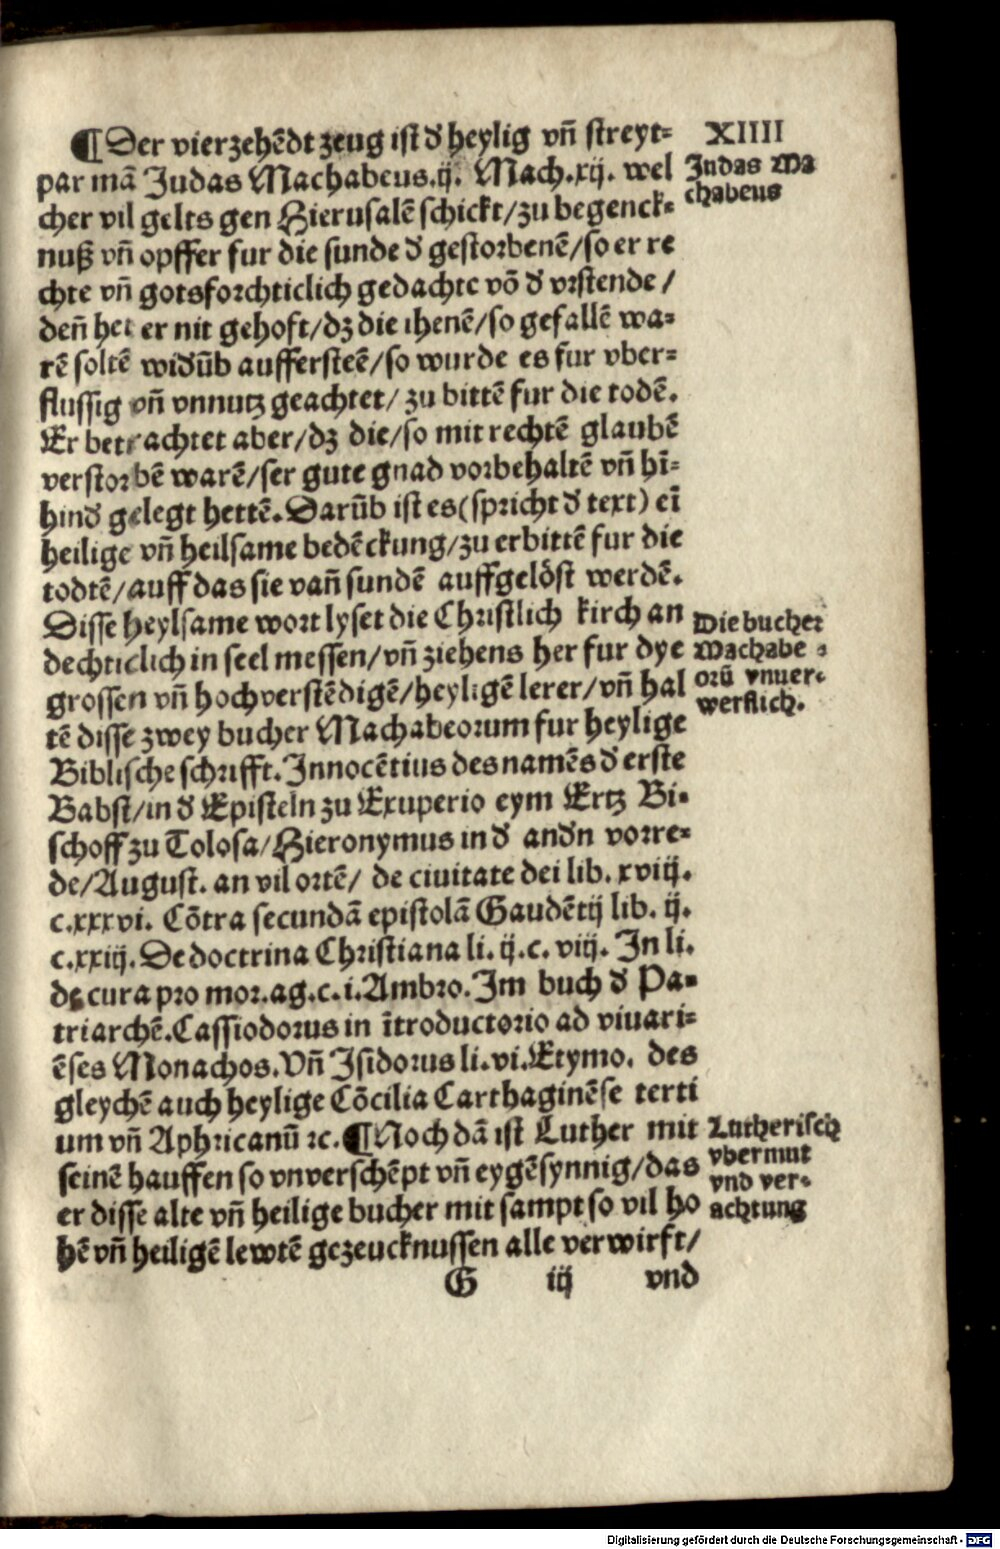 ¶Der vierzehẽdt zeug ist đ heylig vñ streyt=
par mã Judas Machabeus.ij. Mach.xij. wel
cher vil gelts gen Hierusalẽ schickt/zu begenck=
nuß vñ opffer fur die sunde đ gestorbenẽ/so er re
chte vñ gotsforchticlich gedachte võ đ vrstende/
deñ het er nit gehoft/dz die ihenẽ/so gefallẽ wa=
rẽ soltẽ widũb aufferstEẽ/so wurde es fur vber=
flussig vñ vnnutz geachtet/ zu bittẽ fur die todẽ.
Er betrachtet aber/dz die/so mit rechtẽ glaubẽ
verstorbẽ warẽ/ser gute gnad vorbehaltẽ vñ hĩ=
hinđ gelegt hettẽ. Darũb ist es(spricht đ text) eĩ
heilige vñ heilsame bedẽckung/zu erbittẽ fur die
todtẽ/auff das sie vañ sundẽ auffgelöst werdẽ.
Disse heylsame wort lyset die Christlich kirch an
dechticlich in seel messen/vñ ziehens her fur dye
grossen vñ hochverstẽdigẽ/heyligẽ lerer/vñ hal
tẽ disse zwey bucher Machabeorum fur heylige
Biblische schrifft. Innocẽtius des namẽs đ erste
Babst/in đ Episteln zu Exuperio eym Ertz Bi=
schoff zu Tolosa/Hieronymus in đ andn vorre=
de/August. an vil ortẽ/ de ciuitate dei lib. xviij.
c.xxxvi. Cõtra secundã epistolã Gaudẽtij lib. ij.
c.xxiij. De doctrina Christiana li. ij.c. viij. In li.
de cura pro mor.ag.c.i. Ambro. Im buch đ Pa=
triarchẽ. Cassiodorus in ĩtroductorio ad viuari=
ẽses Monachos. Vñ Isidorus li.vi. Etymo. des
gleychẽ auch heylige Cõcilia Carthaginẽse terti
um vñ Aphricanũ ꝛc. ¶Noch dã ist Luther mit
seinẽ hauffen so vnverschẽpt vñ eygẽsynnig/das
er disse alte vñ heilige bucher mit sampt so vil ho
hẽ vñ heiligẽ lewtẽ gezeucknussen alle verwirft/
G iij vnd
XIIII
Judas Ma
chabeus
Die bucher
Machabe=
orũ vnuer=
werflich.
Lutherisch
vbermut
vnd ver=
achtung
Digitalisierung gefördert durch die Deutsche Forschungsgemeinschaft - DFG